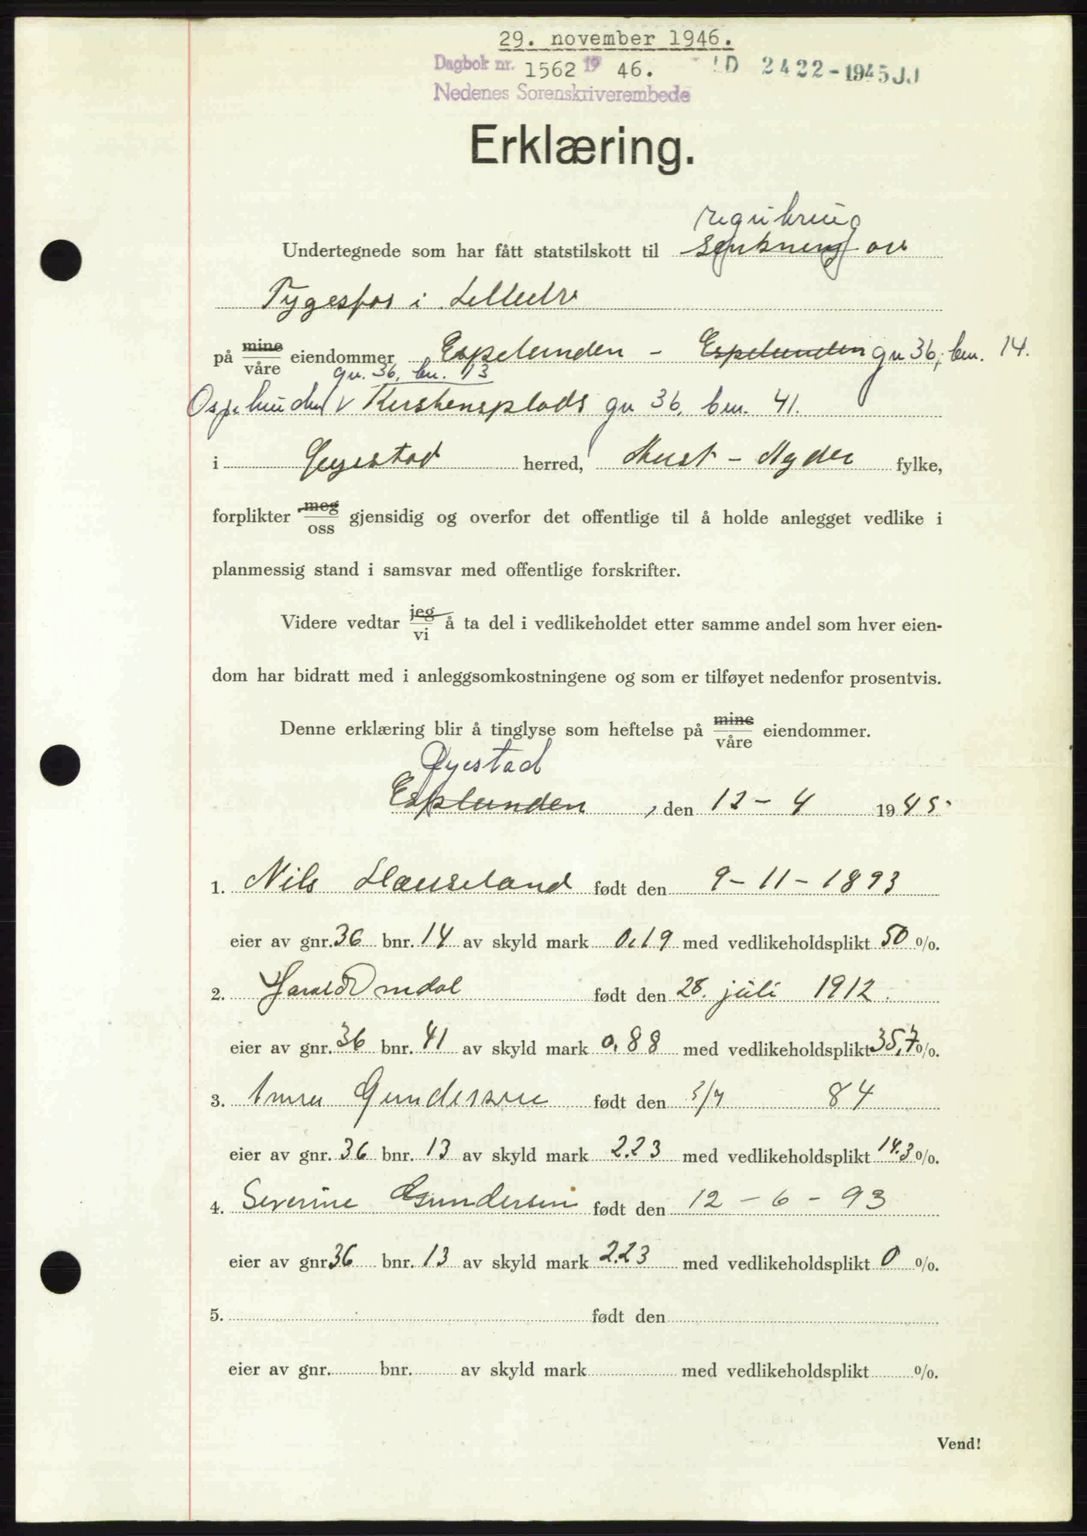 29. november 1946.
Dagbok nr. 1562 19 46. D 2422-1945JJ
Nedenes Sorenskriverembede
Erklæring.
regulering
Undertegnede som har fått statstilskott til senkning av
Tygesfos i Lilleelv
på mine våre eiendommer Espelunden - Espelunden gn 36, bn. 14.
gn. 36, bn. 13
Ospelunden v Kirstensplads gn 36, bn. 41.
i Øyestad herred, Aust-Agder fylke,
forplikter meg oss gjensidig og overfor det offentlige til å holde anlegget vedlike i
planmessig stand i samsvar med offentlige forskrifter.
Videre vedtar jeg vi å ta del i vedlikeholdet etter samme andel som hver eien-
dom har bidratt med i anleggsomkostningene og som er tilføyet nedenfor prosentvis.
Denne erklæring blir å tinglyse som heftelse på mine våre eiendommer.
Øyestad
Esplunden, den 12-4 1945.
1. Nils Hauseland født den 9-11-1893
eier av gnr. 36 bnr. 14 av skyld mark 0,19 med vedlikeholdsplikt 50 %.
2. Harald Omdal født den 28. juli 1912.
eier av gnr. 36 bnr. 41 av skyld mark 0,88 med vedlikeholdsplikt 35,7 %.
3. Gundersen født den 5/7 84
eier av gnr. 36 bnr. 13 av skyld mark 2.23 med vedlikeholdsplikt 14.3 %.
4. Severine Gundersen født den 12-6-93
eier av gnr 36 bnr. 13 av skyld mark 2.23 med vedlikeholdsplikt 0 %.
5. født den
eier av gnr. bnr. av skyld mark med vedlikeholdsplikt %.
Vend!